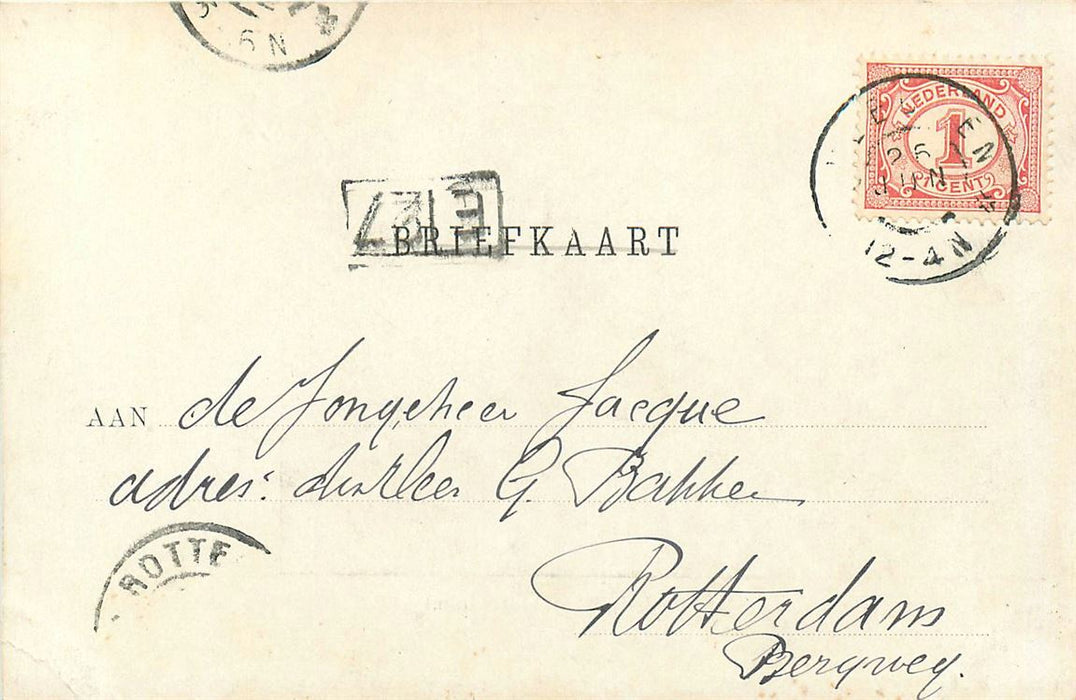 6 N
NEDERLAND
1
CENT
JUN
12-4 N
BRIEFKAART
AAN de Jongeheer Jacque
adres: den Heer G. Bakker
Rotterdam
Bergweg.
ROTTE